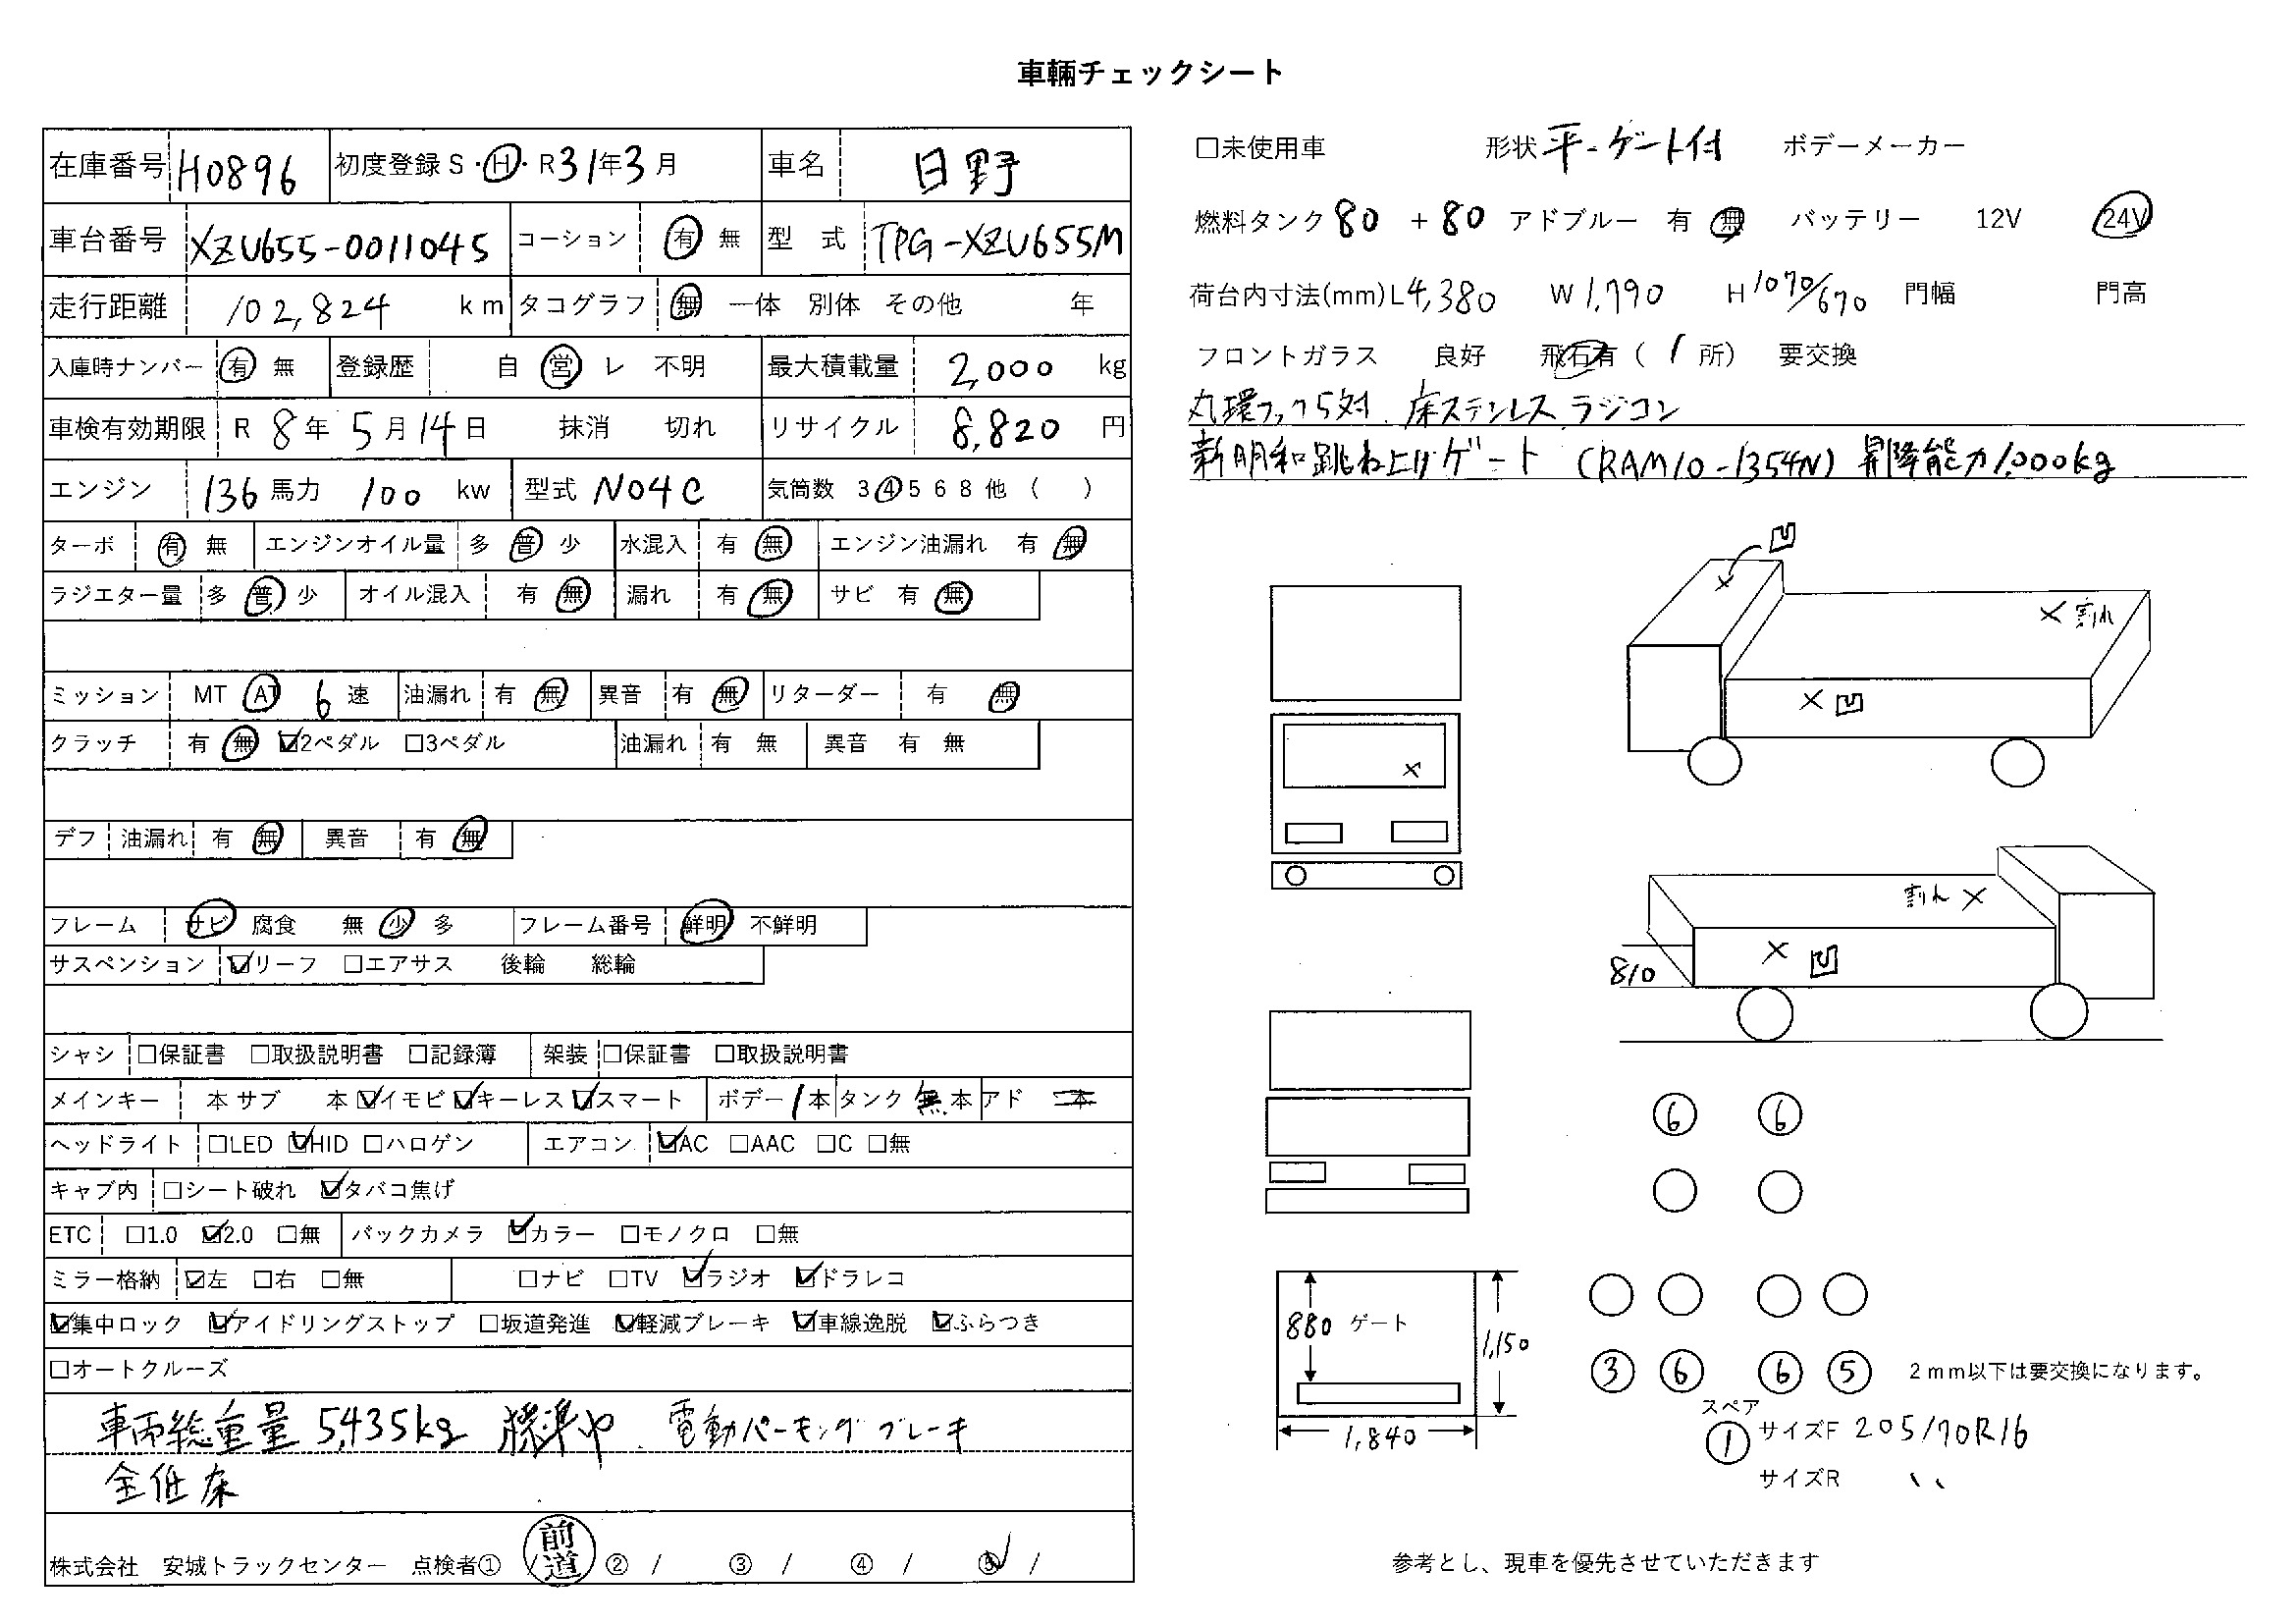 車輛チェックシート
在庫番号 H0896 初度登録 S・H・R 31年3月 車名 日野
車台番号 XZU655-0011045 コーション 有 無 型 式 TPG-XZU655M
走行距離 102,824 km タコグラフ 無 一体 別体 その他 年
入庫時ナンバー 有 無 登録歴 自 営 レ 不明 最大積載量 2,000 kg
車検有効期限 R 8年 5月14日 抹消 切れ リサイクル 8,820 円
エンジン 136 馬力 100 kw 型式 N04C 気筒数 3 4 5 6 8 他 ( )
ターボ 有 無 エンジンオイル量 多 普 少 水混入 有 無 エンジン油漏れ 有 無
ラジエター量 多 普 少 オイル混入 有 無 漏れ 有 無 サビ 有 無
ミッション MT AT 6 速 油漏れ 有 無 異音 有 無 リターダー 有 無
クラッチ 有 無 ☑2ペダル □3ペダル 油漏れ 有 無 異音 有 無
デフ 油漏れ 有 無 異音 有 無
フレーム サビ 腐食 無 少 多 フレーム番号 鮮明 不鮮明
サスペンション ☑リーフ □エアサス 後輪 総輪
シャシ □保証書 □取扱説明書 □記録簿 架装 □保証書 □取扱説明書
メインキー 本 サブ 本 ☑イモビ ☑キーレス ☑スマート ボデー 1本 タンク 無 本 アド 本
ヘッドライト □LED ☑HID □ハロゲン エアコン ☑AC □AAC □C □無
キャブ内 □シート破れ ☑タバコ焦げ
ETC □1.0 ☑2.0 □無 バックカメラ ☑カラー □モノクロ □無
ミラー格納 ☑左 □右 □無 □ナビ □TV ☑ラジオ ☑ドラレコ
☑集中ロック ☑アイドリングストップ □坂道発進 ☑軽減ブレーキ ☑車線逸脱 ☑ふらつき
□オートクルーズ
車両総重量 5,435kg 電動パーキングブレーキ
全低床
株式会社 安城トラックセンター 点検者① / 前道 ② / ③ / ④ / ⑤ /
□未使用車 形状 平-ゲート付 ボデーメーカー
燃料タンク 80 + 80 アドブルー 有 無 バッテリー 12V 24V
荷台内寸法(mm) L 4,380 W 1,790 H 1070/670 門幅 門高
フロントガラス 良好 飛石有 ( 1 所) 要交換
丸環フック5対. 床ステンレス ラジコン
新明和跳ね上げゲート (RAM10-1354N) 昇降能力1,000kg
凹
× × 割れ
× 凹
×
割れ ×
× 凹
810
6 6
880 ゲート 1,150
1,840
3 6 6 5 2mm以下は要交換になります。
スペア
1 サイズF 205/70R16
サイズR 〃
参考とし、現車を優先させていただきます